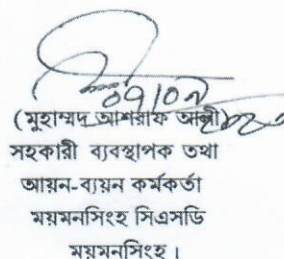 ০৭/০৯
(মুহাম্মদ আশরাফ আলী)
সহকারী ব্যবস্থাপক তথা
আয়ন-ব্যয়ন কর্মকর্তা
ময়মনসিংহ সিএসডি
ময়মনসিংহ।